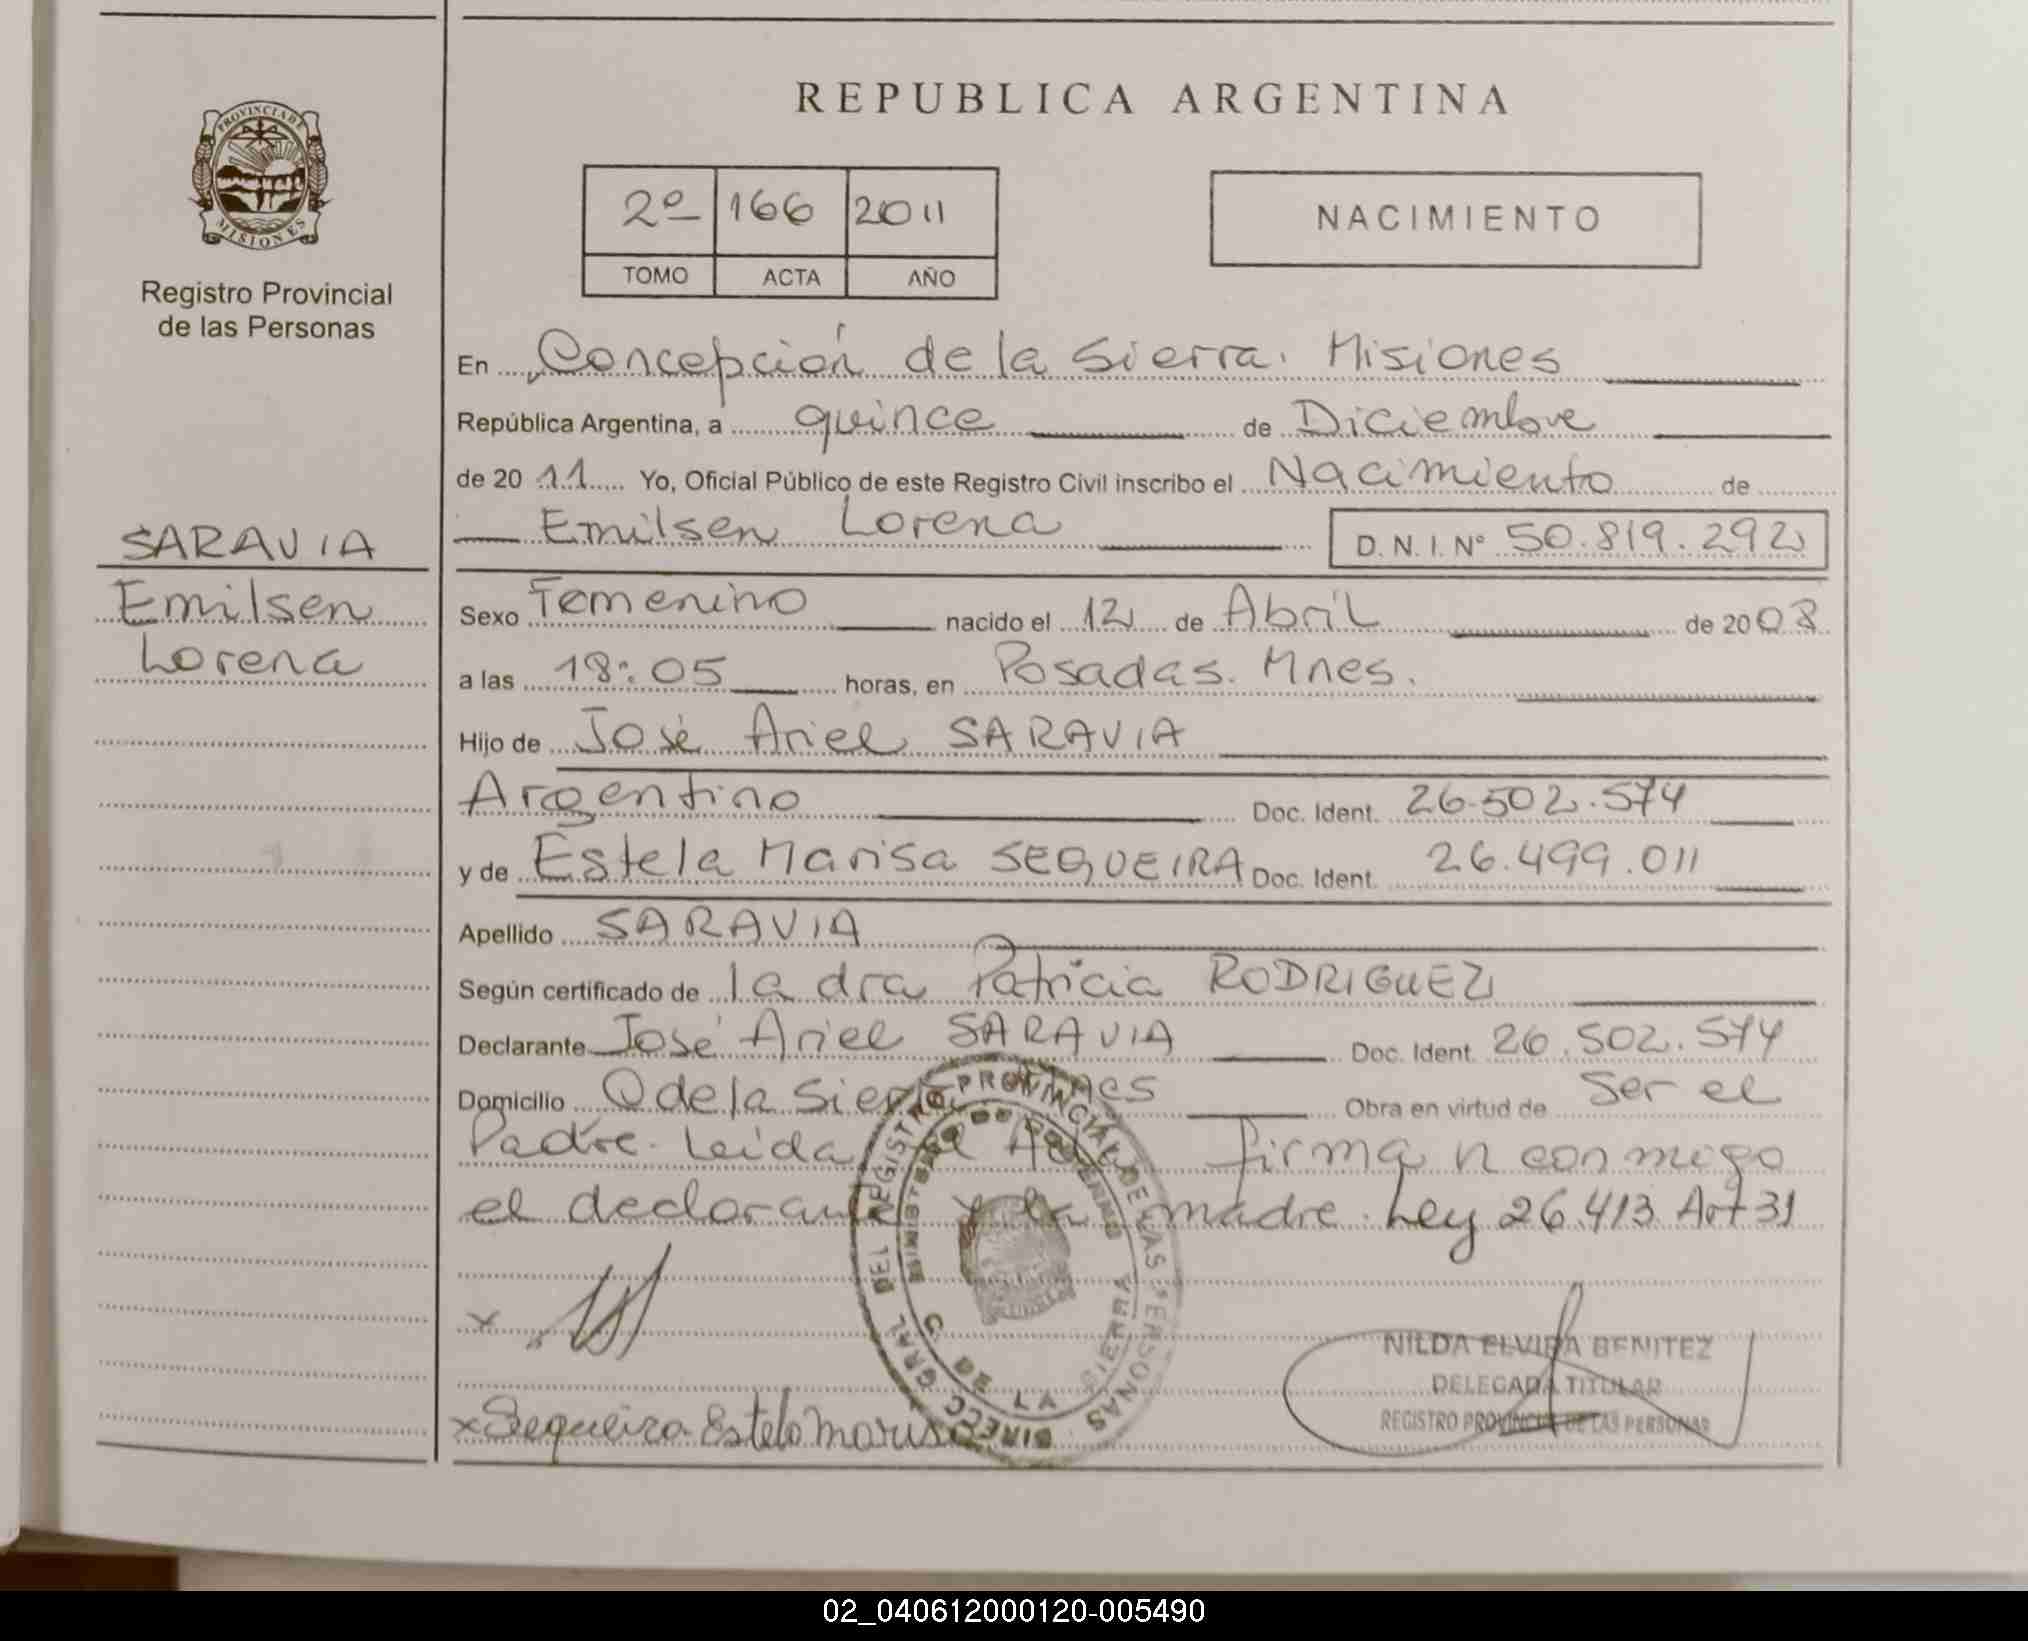 REPUBLICA ARGENTINA
PROVINCIA DE
MISIONES
Registro Provincial
de las Personas
2º 166 2011
TOMO ACTA AÑO
NACIMIENTO
En Concepción de la Sierra. Misiones
República Argentina, a quince de Diciembre
de 20 11 Yo, Oficial Público de este Registro Civil inscribo el Nacimiento de
Emilsen Lorena D. N. I. Nº 50.819.292
SARAVIA
Emilsen
Lorena
Sexo Femenino nacido el 12 de Abril de 2008
a las 18:05 horas, en Posadas. Mnes.
Hijo de José Ariel SARAVIA
Argentino Doc. Ident. 26.502.574
y de Estela Marisa SEQUEIRA Doc. Ident. 26.499.011
Apellido SARAVIA
Según certificado de la dra Patricia RODRIGUEZ
Declarante José Ariel SARAVIA Doc. Ident. 26.502.574
Domicilio C de la Sierra Mnes Obra en virtud de Ser el
Padre. Leida el Acta firman conmigo
el declarante y la madre. Ley 26.413 Art 31
DIRECC. GRAL. DEL REGISTRO PROVINCIAL DE LAS PERSONAS
MINISTERIO DE GOBIERNO
C. DE LA SIERRA
x
x Sequeira Estela Marisa
NILDA ELVIRA BENITEZ
DELEGADA TITULAR
REGISTRO PROVINCIAL DE LAS PERSONAS
02_040612000120-005490